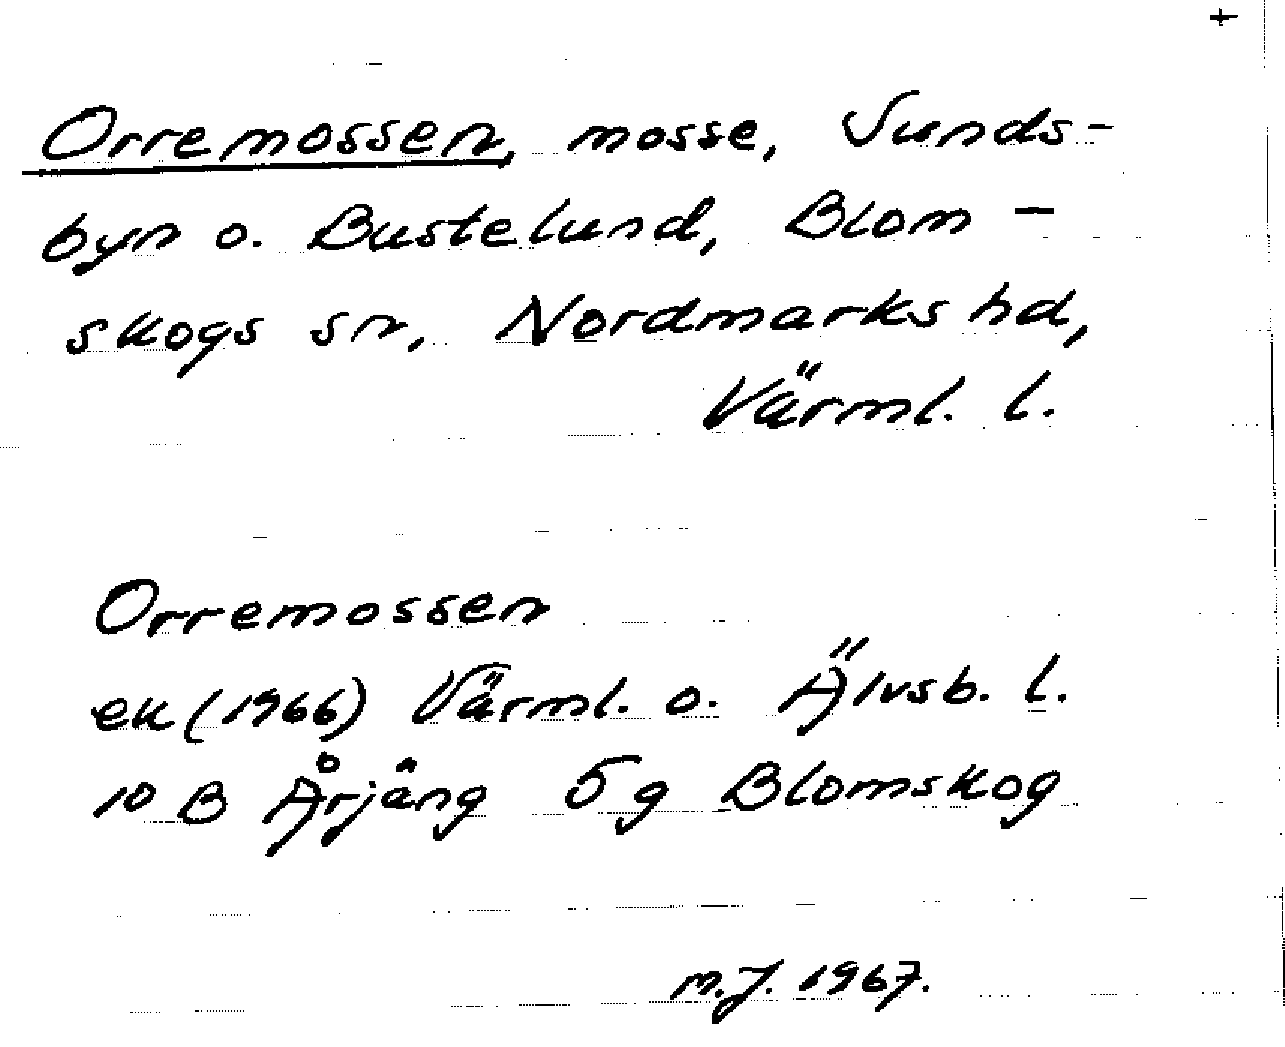 +
Orremossen, mosse, Sunds-
byn o. Bustelund, Blom-
skogs sn, Nordmarks hd,
Värml. l.
Orremossen
ek (1966) Värml. o. Älvsb. l.
10 B Årjäng 5g Blomskog
M.J. 1967.